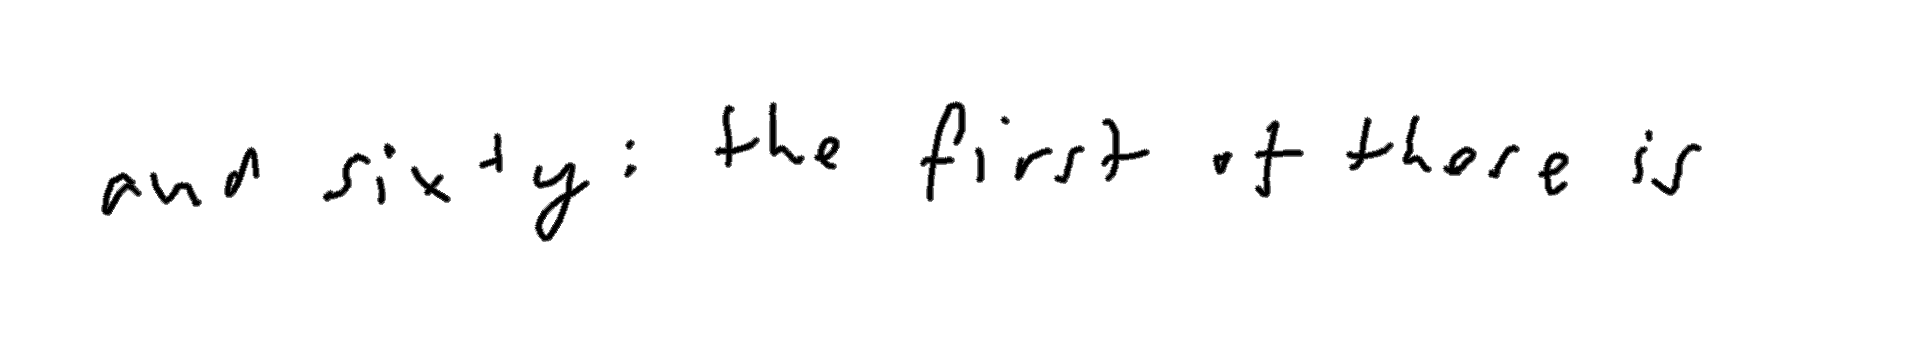 and sixty: the first of these is